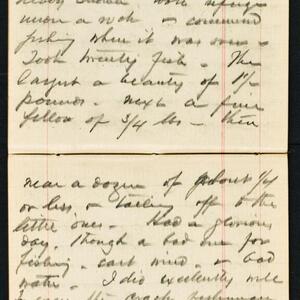 under a rock & commenced
fishing when it was over -
Took twenty fish. The
largest a beauty of 1 1/4
pounds - next a fine
fellow of 3/4 lbs - then
near a dozen of about 1/4
or less & tailing off to the
little ones. Had a glorious
day. Though a bad one for
fishing - east wind & bad
water. I did excellently well